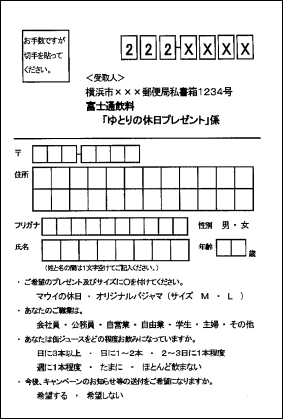 お手数ですが
切手を貼って
ください。
222-XXXX
＜受取人＞
横浜市×××郵便局私書箱1234号
富士通飲料
「ゆとりの休日プレゼント」係
〒
住所
フリガナ
性別 男・女
氏名
年齢 歳
(姓と名の間は1文字空けてご記入ください。)
・ ご希望のプレゼント及びサイズに○を付けてください。
マウイの休日 ・ オリジナルパジャマ (サイズ M ・ L )
・ あなたのご職業は。
会社員 ・ 公務員 ・ 自営業 ・ 自由業 ・ 学生 ・ 主婦 ・ その他
・ あなたは缶ジュースをどの程度お飲みになっていますか。
日に3本以上 ・ 日に1～2本 ・ 2～3日に1本程度
週に1本程度 ・ たまに ・ ほとんど飲まない
・ 今後、キャンペーンのお知らせ等の送付をご希望になりますか。
希望する ・ 希望しない